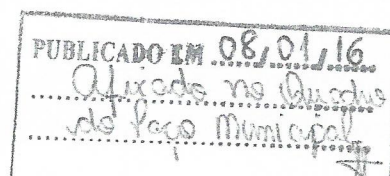 PUBLICADO EM 08/01/16
Afixado no Quadro
do Paço Municipal